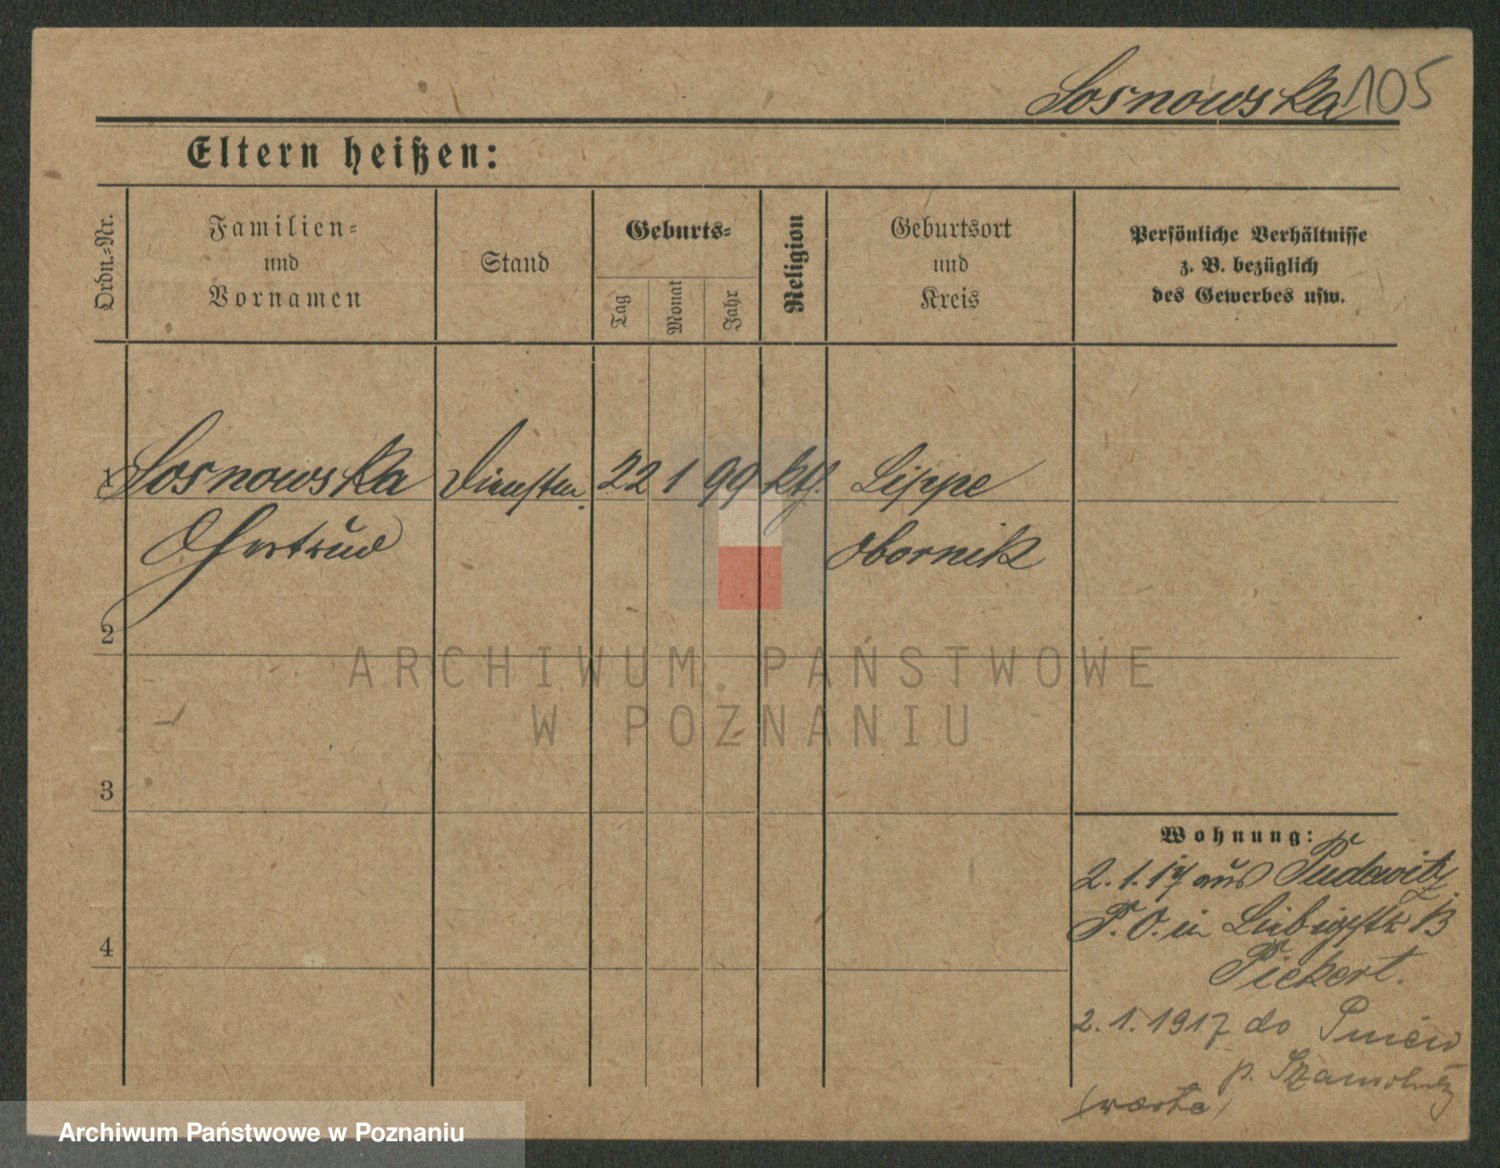 Sosnowska 105
Eltern heißen:
Ordn.-Nr.
Familien-
und
Vornamen
Stand
Geburts-
Tag
Monat
Jahr
Religion
Geburtsort
und
Kreis
Persönliche Verhältnisse
z. B. bezüglich
des Gewerbes usw.
1 Sosnowska Dienstm. 22 1 99 kth. Lippe
Gertrud Obornik
2
3
4
Wohnung:
2.1.17 aus Pudewitz
P. O. in
Piekert.
2.1.1917 do Pniew
p.
ARCHIWUM PAŃSTWOWE
W POZNANIU
Archiwum Państwowe w Poznaniu